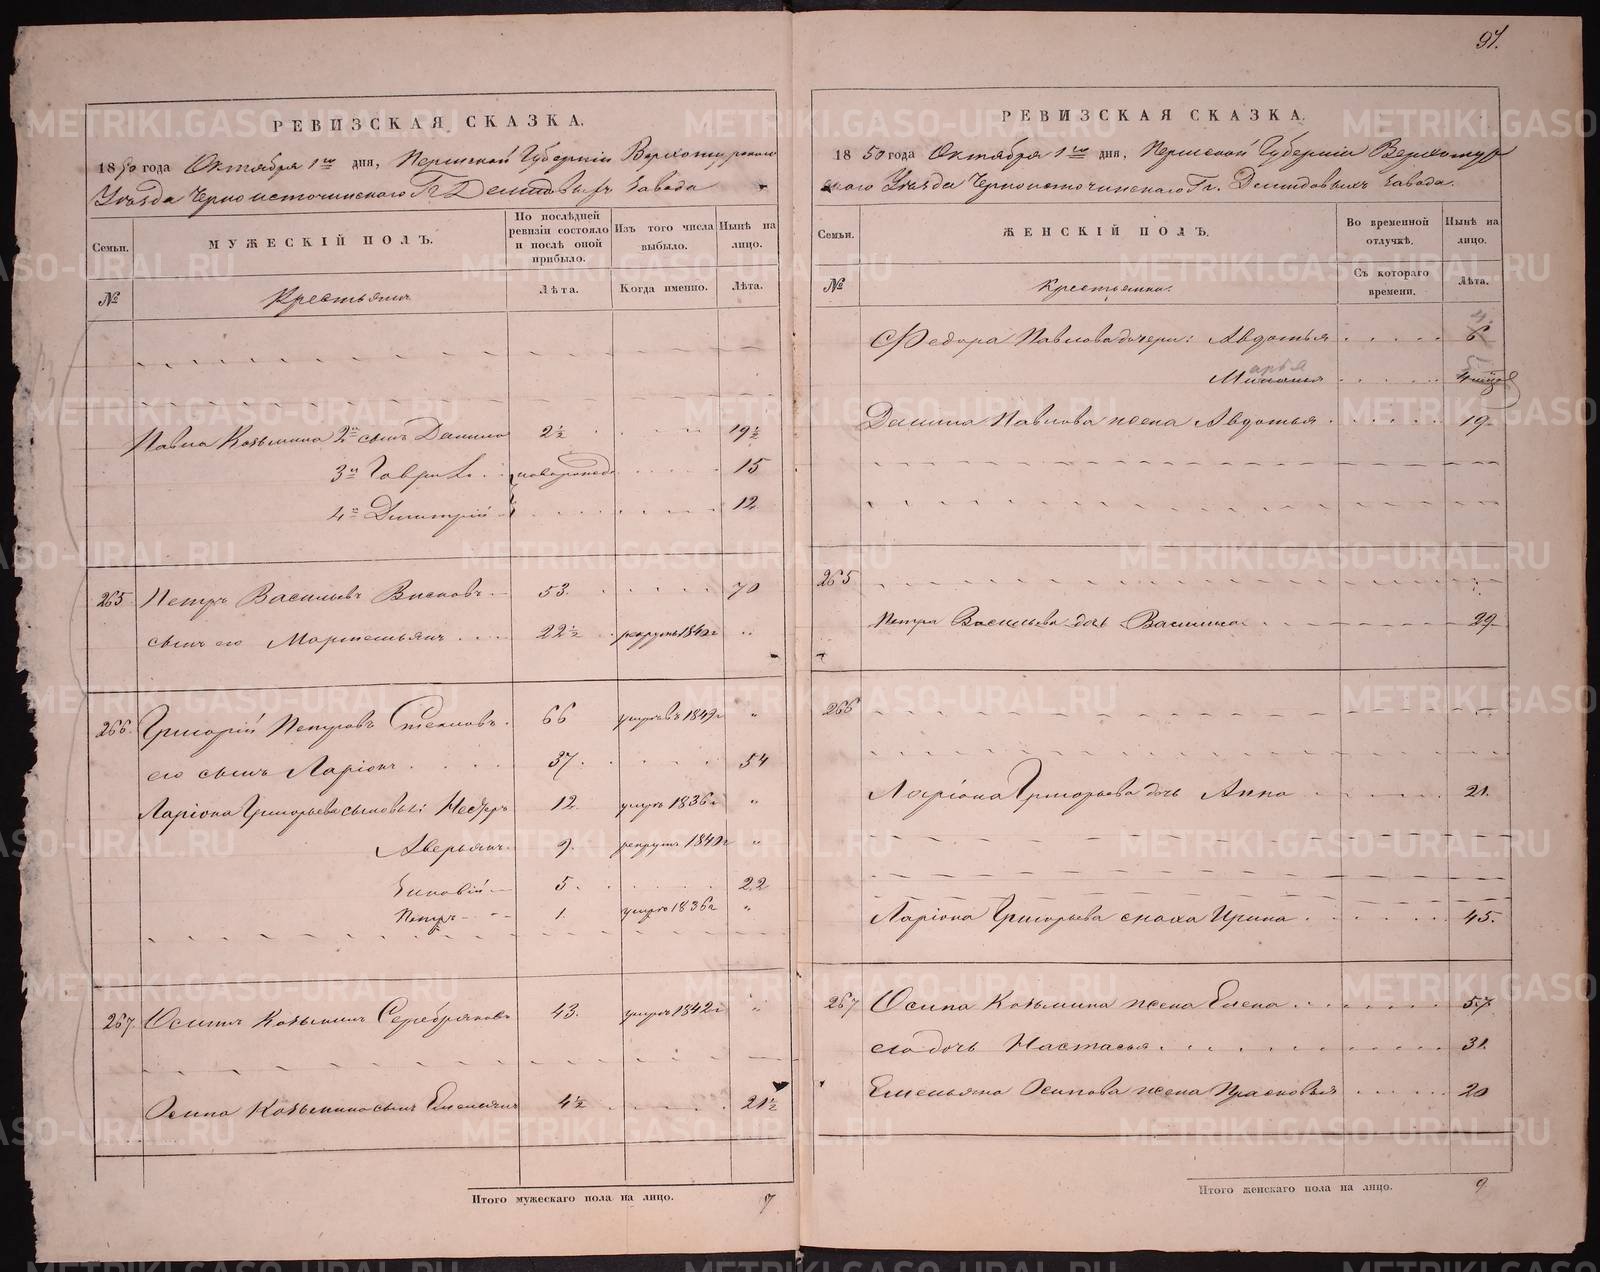 91.
РЕВИЗСКАЯ СКАЗКА.
1850 года Октября 1го дня, Пермской Губернiи Верхотурскаго
Уѣзда Черноисточинскаго Гг Демидовыхъ Завода
Семьи.
МУЖЕСКIЙ ПОЛЪ.
По послѣдней ревизiи состояло и послѣ оной прибыло.
Изъ того числа выбыло.
Нынѣ на лицо.
№
Крестьянъ
Лѣта.
Когда именно.
Лѣта.
Павла Козьмина 2й сынъ Данило 2½ 19½
3й Гаврило новорожд 15
4й Дмитрiй 12
265 Петръ Васильевъ 53. 70
сынъ его Мартемьянъ 22½ рекрут 1840г "
266. Григорiй Петровъ 66 умеръ въ 1849г "
его сынъ Ларiонъ 37. 54
Ларiона Григорьева сыновья: 12. умеръ 1836г "
Аверьянъ 9. рекрутъ 1849г "
5. 22
Петръ 1. умеръ 1836г "
267. Осипъ Козьминъ Серебряковъ 43. умеръ 1842г "
Осипа Козьмина сынъ Емельянъ 4½ 21½
Итого мужескаго пола на лицо. 7
РЕВИЗСКАЯ СКАЗКА.
1850 года Октября 1го дня, Пермской Губернiи Верхотур
скаго Уѣзда Черноисточинскаго Гг. Демидовыхъ Завода.
Семьи.
ЖЕНСКIЙ ПОЛЪ.
Во временной отлучкѣ.
Нынѣ на лицо.
№
Крестьянка.
Съ котораго времени.
Лѣта.
Федора Павлова дочери: Авдотья 6
Данила Павлова жена Авдотья 19
265
Петра Васильева дочь Василиса 29
266
Ларiона Григорьева дочь Анна 21.
Ларiона Григорьева сноха Ирина 45.
267 Осипа Козьмина жена Елена 57
его дочь Настасья 31.
Емельяна Осипова жена Прасковья 20
Итого женскаго пола на лицо. 9
METRIKI.GASO-URAL.RU